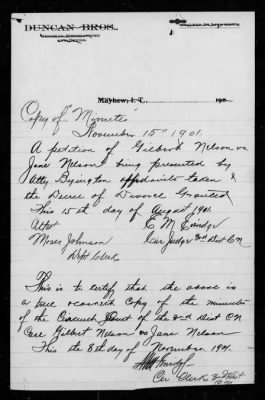 DUNCAN BROS.
Mayhew, I. T., 190
Copy of "Minutes"
November 15" 1901.
A petition of Gilbrok Nelson vs
Jane Nelson being presented by
Atty Byington affidavits taken &
the Decree of Divorce Granted
This 15th day of August 1901.
Attst
Moses Johnson Cir Judge 2nd Dist CN
Dept Clerk
This is to certify that the above is
a true Copy of the minutes
of the Circuit Court of the 2nd Dist CN
Case Gilbert Nelson vs Jane Nelson
This the 8th day of November 1901.
Cir Clerk 2nd Dist